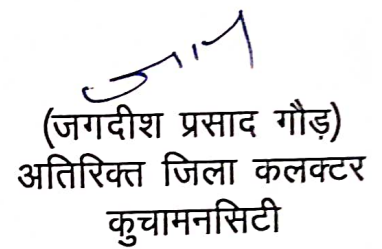 (जगदीश प्रसाद गौड़)
अतिरिक्त जिला कलक्टर
कुचामनसिटी